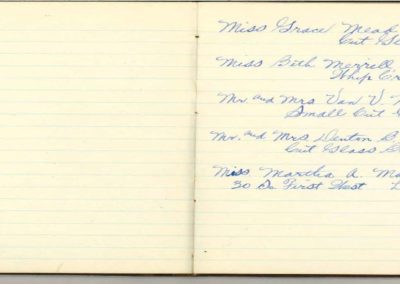 Miss Grace Mea
Cut Gl
Miss Beth Merrill
Whip Cr
Mr. and Mrs Van V.
Small Cut
Mr. and Mrs Denton B
Cut Glass
Miss Martha A. Ma
30 So. First West